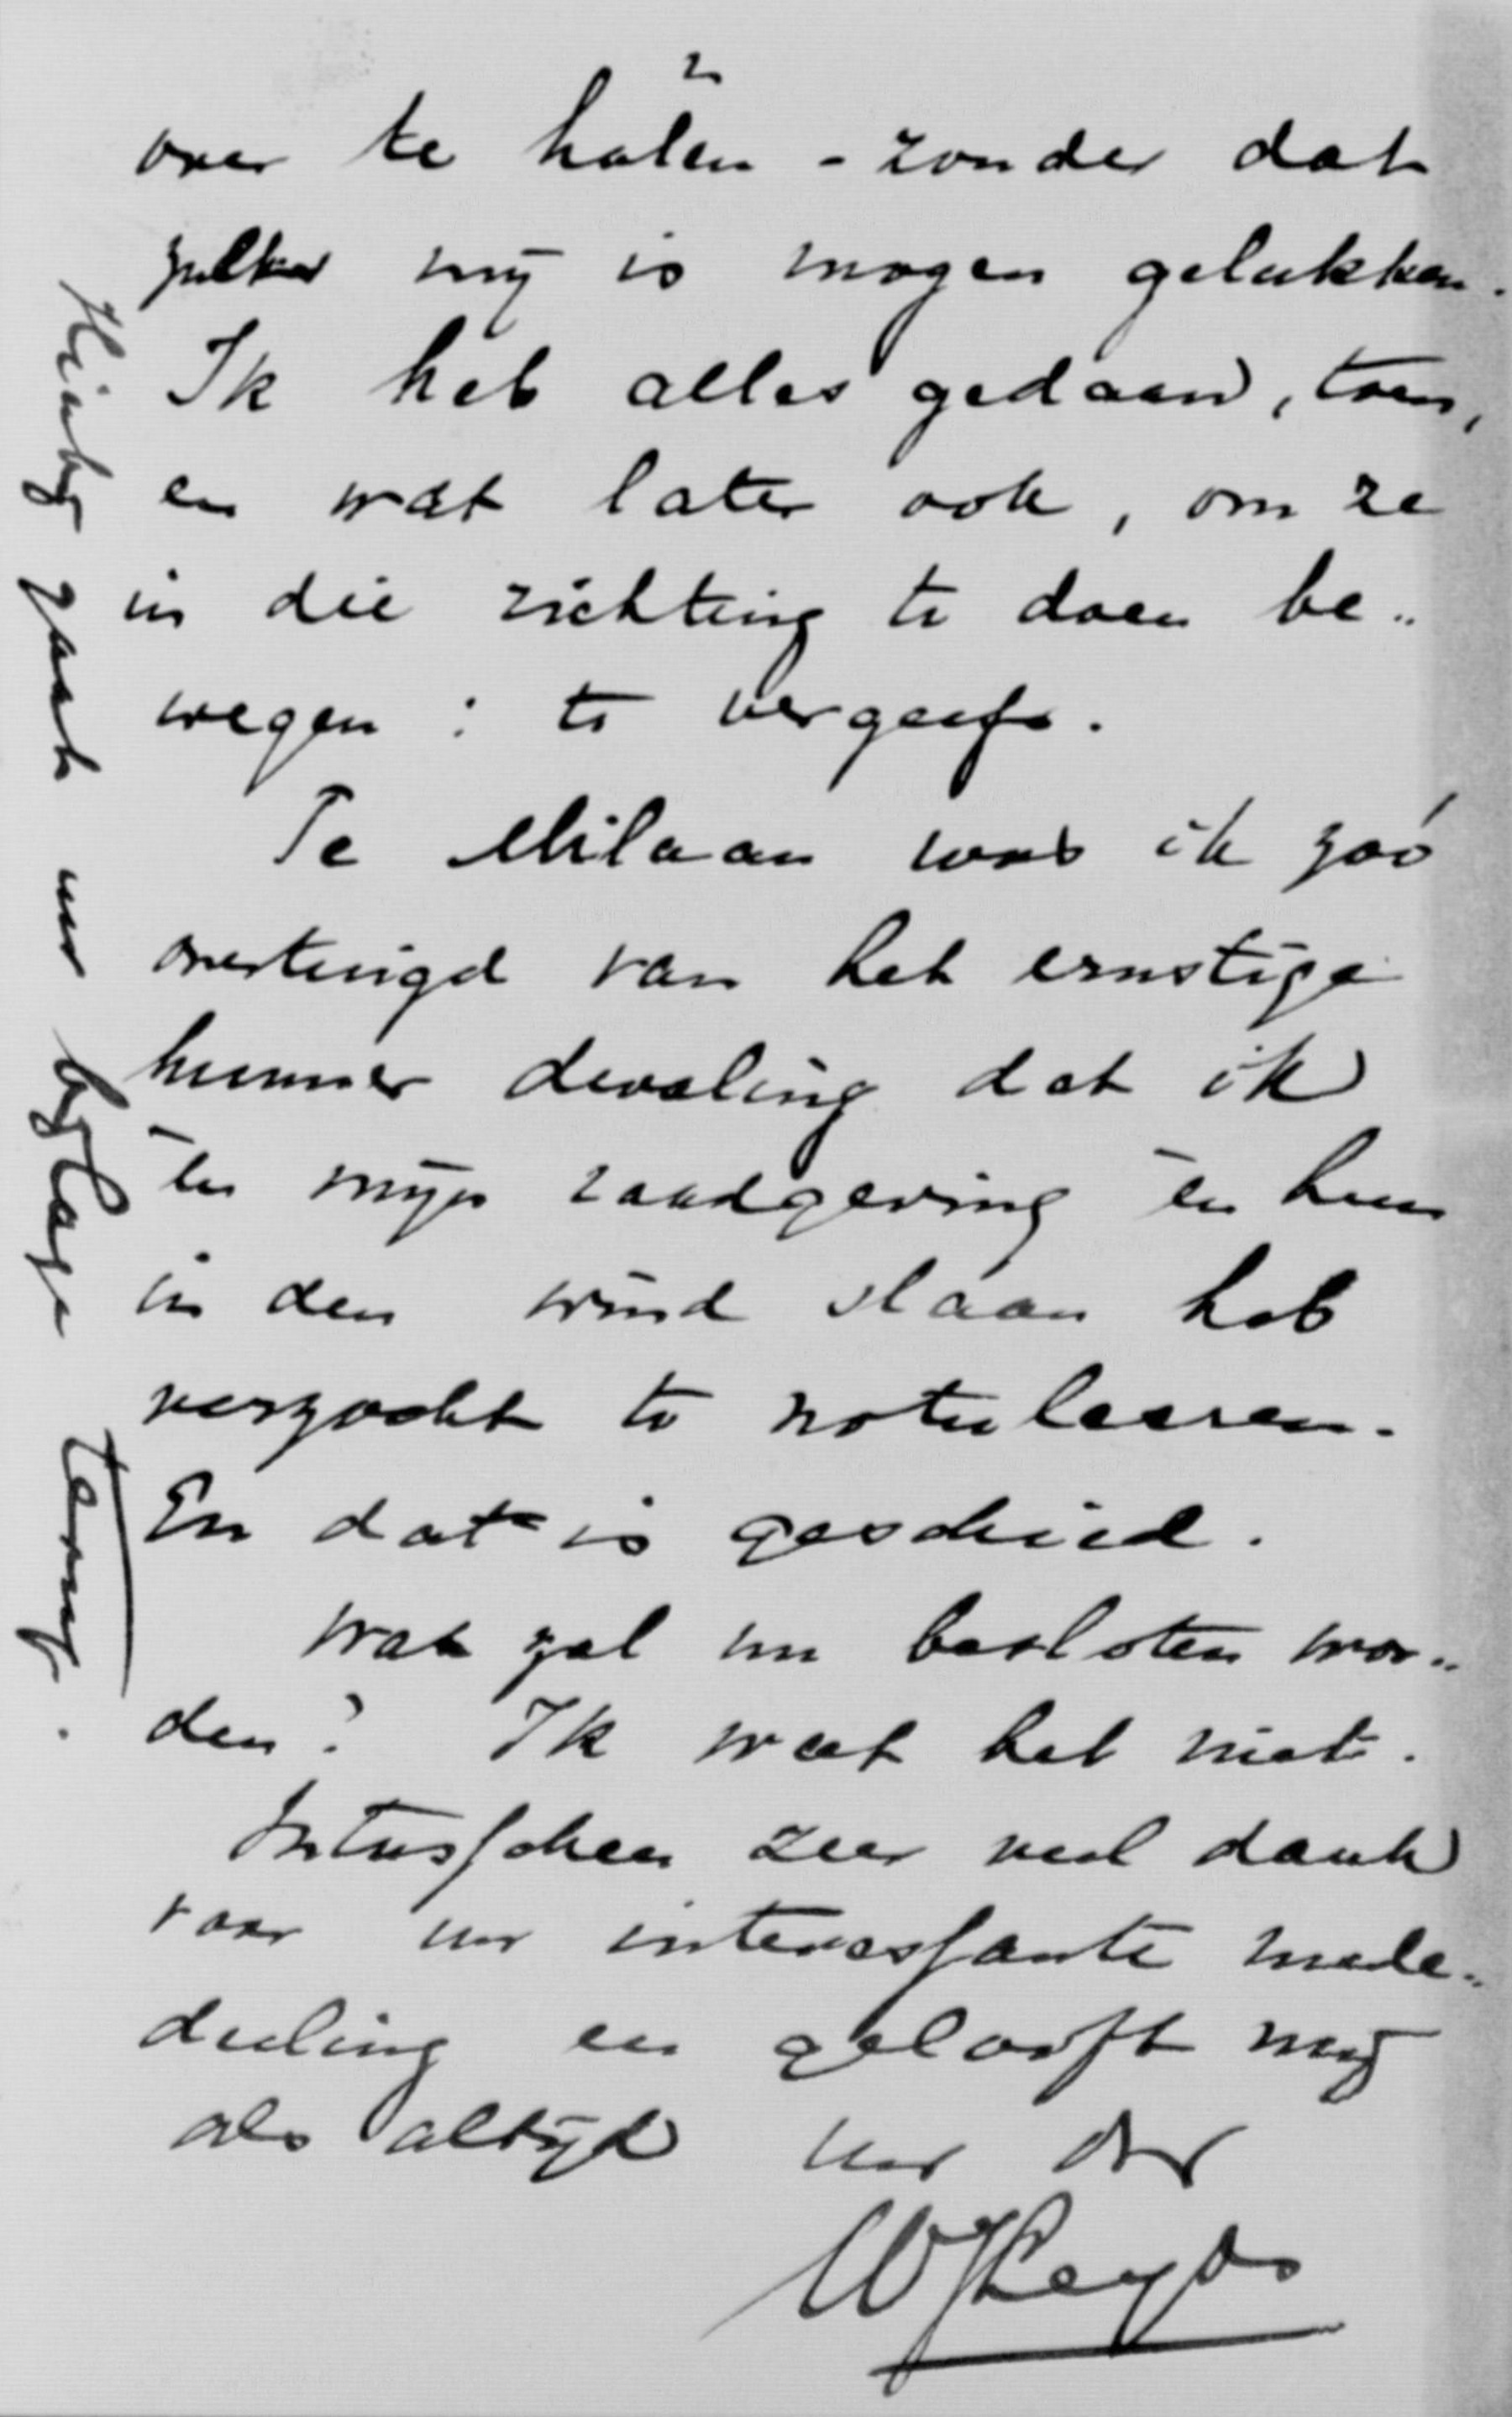 2
over te halen - zonder dat
zulks mij is mogen gelukken.
Ik heb alles gedaan, toen,
en wat later ook, om ze
in die richting te doen be..
wegen : te vergeefs.
Te Milaan was ik zóó
overtuigd van het ernstige
hunner dwaling dat ik
èn mijn raadgeving èn hun
in den wind slaan heb
verzocht te notuleeren.
En dat is geschied.
Wat zal nu besloten wor..
den? Ik weet het niet.
Intusschen zeer veel dank
voor uw interessante mede..
deeling en gelooft mij
als altijd uw
WJLeyds
Hierbij gaat uw bijlage terug.